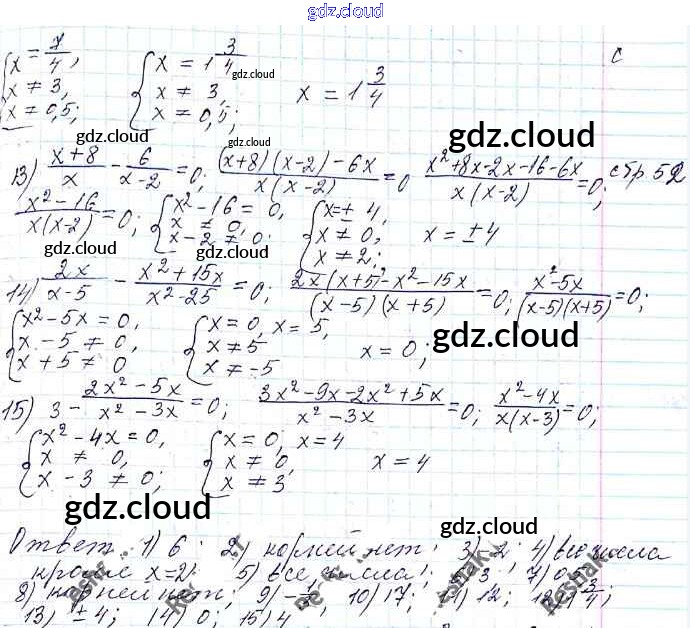 gdz.cloud
x = 7/4, x = 1 3/4 с
x ≠ 3, x ≠ 3, x = 1 3/4
x ≠ 0,5; x ≠ 0,5;
gdz.cloud
gdz.cloud gdz.cloud
13) (x+8)/x - 6/(x-2) = 0; ((x+8)(x-2)-6x)/(x(x-2)) = 0 (x²+8x-2x-16-6x)/(x(x-2)) = 0; стр 52
(x²-16)/(x(x-2)) = 0; x²-16 = 0, x = ± 4,
x ≠ 0, x ≠ 0, x = ±4
x-2 ≠ 0; x ≠ 2;
gdz.cloud gdz.cloud
14) 2x/(x-5) - (x²+15x)/(x²-25) = 0; (2x(x+5)-x²-15x)/((x-5)(x+5)) = 0; (x²-5x)/((x-5)(x+5)) = 0;
x²-5x = 0, x = 0, x = 5,
x-5 ≠ 0, x ≠ 5 x = 0;
x+5 ≠ 0 x ≠ -5
gdz.cloud
15) 3 - (2x²-5x)/(x²-3x) = 0; (3x²-9x-2x²+5x)/(x²-3x) = 0; (x²-4x)/(x(x-3)) = 0;
x²-4x = 0, x = 0; x = 4
x ≠ 0, x ≠ 0, x = 4
x-3 ≠ 0; x ≠ 3
gdz.cloud gdz.cloud
Ответ: 1) 6; 2) корней нет; 3) -2; 4) все числа
кроме x=2; 5) все числа; 3 7) 0,5
8) корней нет; 9) 10) 17; 11) 12; 12) 1 3/4;
13) ±4; 14) 0; 15) 4